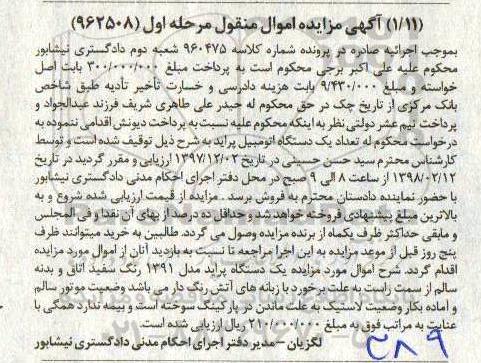 (۱/۱۱) آگهی مزایده اموال منقول مرحله اول (۹۶۲۵۰۸)
بموجب اجرائیه صادره در پرونده شماره کلاسه ۹۶۰۴۷۵ شعبه دوم دادگستری نیشابور
محکوم علیه علی اکبر برجی محکوم است به پرداخت مبلغ ۳۰۰/۰۰۰/۰۰۰ بابت اصل
خواسته و مبلغ ۹/۴۳۰/۰۰۰ بابت هزینه دادرسی و خسارت تأخیر تأدیه طبق شاخص
بانک مرکزی از تاریخ چک در حق محکوم له حیدر علی طاهری شریف فرزند عبدالجواد و
پرداخت نیم عشر دولتی نظر به اینکه محکوم علیه نسبت به پرداخت دیونش اقدامی ننموده به
درخواست محکوم له تعداد یک دستگاه اتومبیل پراید به شرح ذیل توقیف شده است و توسط
کارشناس محترم سید حسن حسینی در تاریخ ۱۳۹۷/۱۲/۰۲ ارزیابی و مقرر گردید در تاریخ
۱۳۹۸/۰۲/۱۲ از ساعت ۸ الی ۹ صبح در محل دفتر اجرای احکام مدنی دادگستری نیشابور
با حضور نماینده دادستان محترم به فروش برسد . مزایده از قیمت ارزیابی شده شروع و به
بالاترین مبلغ پیشنهادی فروخته خواهد شد و حداقل ده درصد از بهای آن نقدا و فی المجلس
و مابقی حداکثر ظرف یکماه از برنده مزایده وصول می گردد. طالبین به خرید میتوانند ظرف
پنج روز قبل از موعد مزایده به این اجرا مراجعه تا نسبت به بازدید آنان از اموال مورد مزایده
اقدام گردد. شرح اموال مورد مزایده یک دستگاه پراید مدل ۱۳۹۱ رنگ سفید اتاق و بدنه
سالم از سمت راست به علت برخورد با زبانه های آتش رنگ دار می باشد وضعیت موتور سالم
و آماده بکار وضعیت لاستیک به علت ماندن در پارکینگ سوخته است و بیمه ندارد همگی با
عنایت به مراتب فوق به مبلغ ۲۱۰/۰۰۰/۰۰۰ ریال ارزیابی شده است.
لگزیان – مدیر دفتر اجرای احکام مدنی دادگستری نیشابور